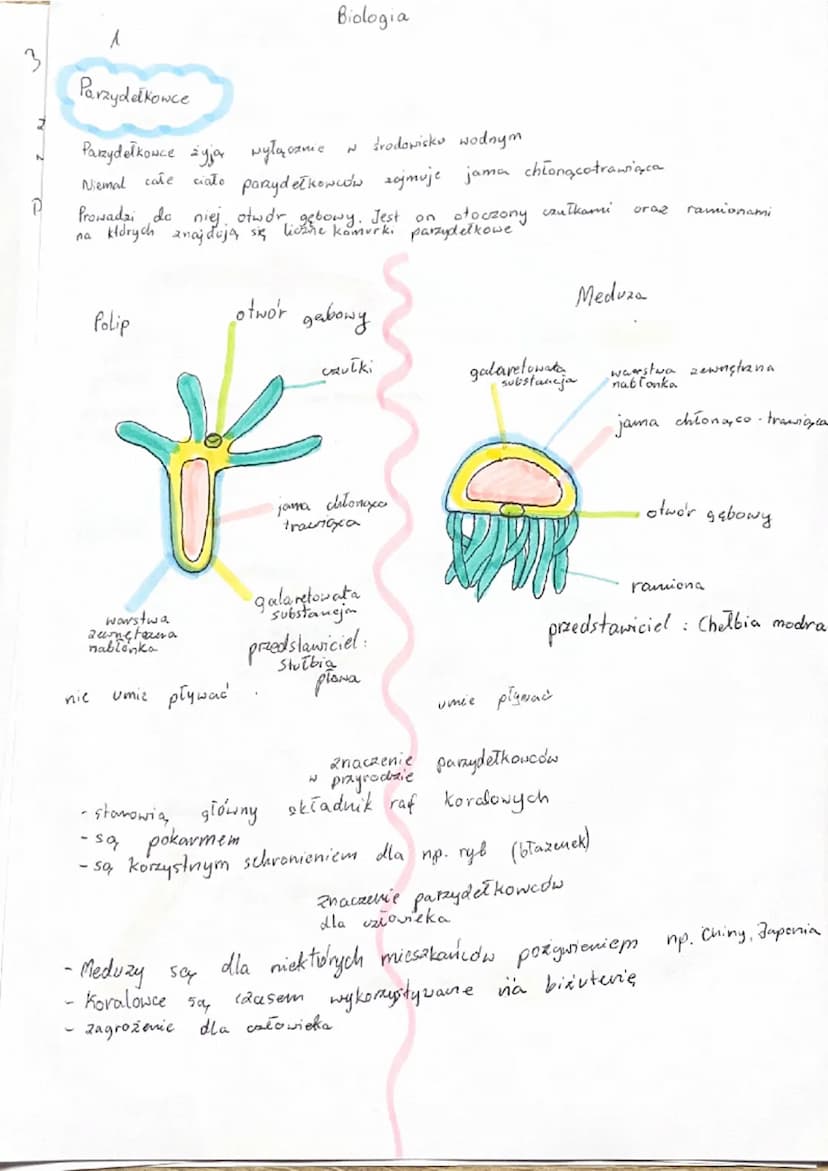 Biologia
1
3
Parzydełkowce
Parzydełkowce żyją wyłącznie w środowisku wodnym
Niemal całe ciało parzydełkowców zajmuje jama chłonącotrawiąca
Prowadzi do niej otwór gębowy. Jest on otoczony czułkami oraz ramionami
na których znajdują się liczne komurki parzydełkowe
Polip
otwór gębowy
czułki
jama chłonąco
trawiąca
galaretowata
substancja
warstwa
zewnętrzna
nabłonka
przedstawiciel:
Stułbia
płowa
nie umie pływać
Meduza
galaretowata
substancja
warstwa zewnętrzna
nabłonka
jama chłonąco-trawiąca
otwór gębowy
ramiona
przedstawiciel: Chełbia modra
umie pływać
znaczenie parzydełkowców
w przyrodzie
- stanowią główny składnik raf koralowych
- są pokarmem
- są korzystnym schronieniem dla np. ryb (błazenek)
Znaczenie parzydełkowców
dla człowieka
- Meduzy są dla niektórych mieszkańców pożywieniem np. Chiny, Japonia
- Koralowce są czasem wykorzystywane na biżuterię
- zagrożenie dla człowieka